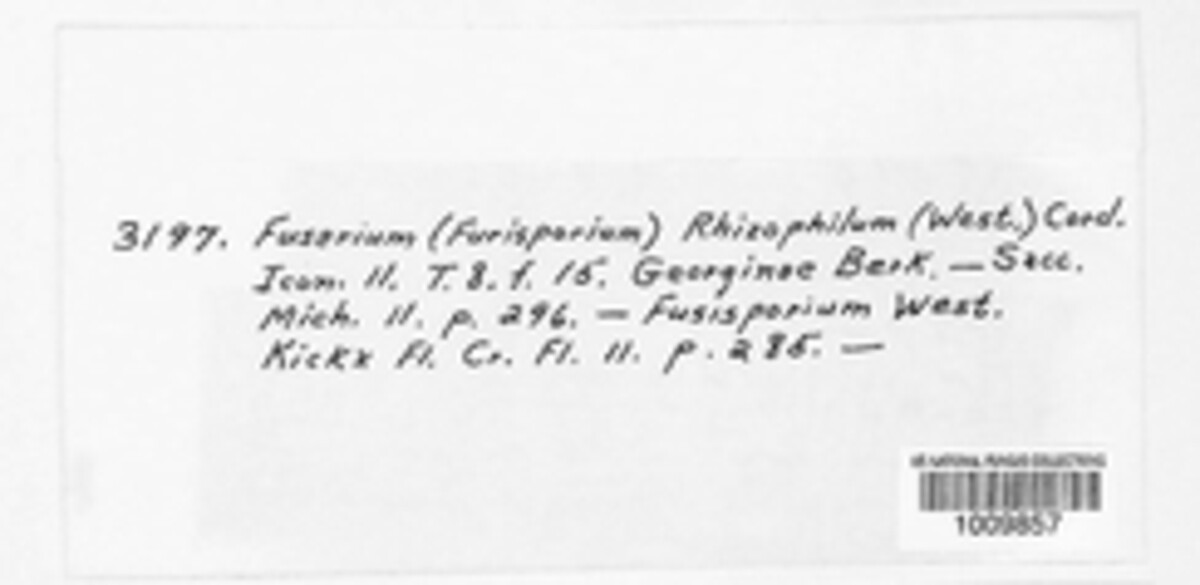 3197. Fusarium (Furisporium) Rhizophilum (West.) Cord.
Icon. II. T. 8. f. 15. Georginae Berk. — Sacc.
Mich. II. p. 296. — Fusisporium West.
Kickx Fl. Cr. Fl. II. p. 285. —
US NATIONAL FUNGUS COLLECTIONS
1009857